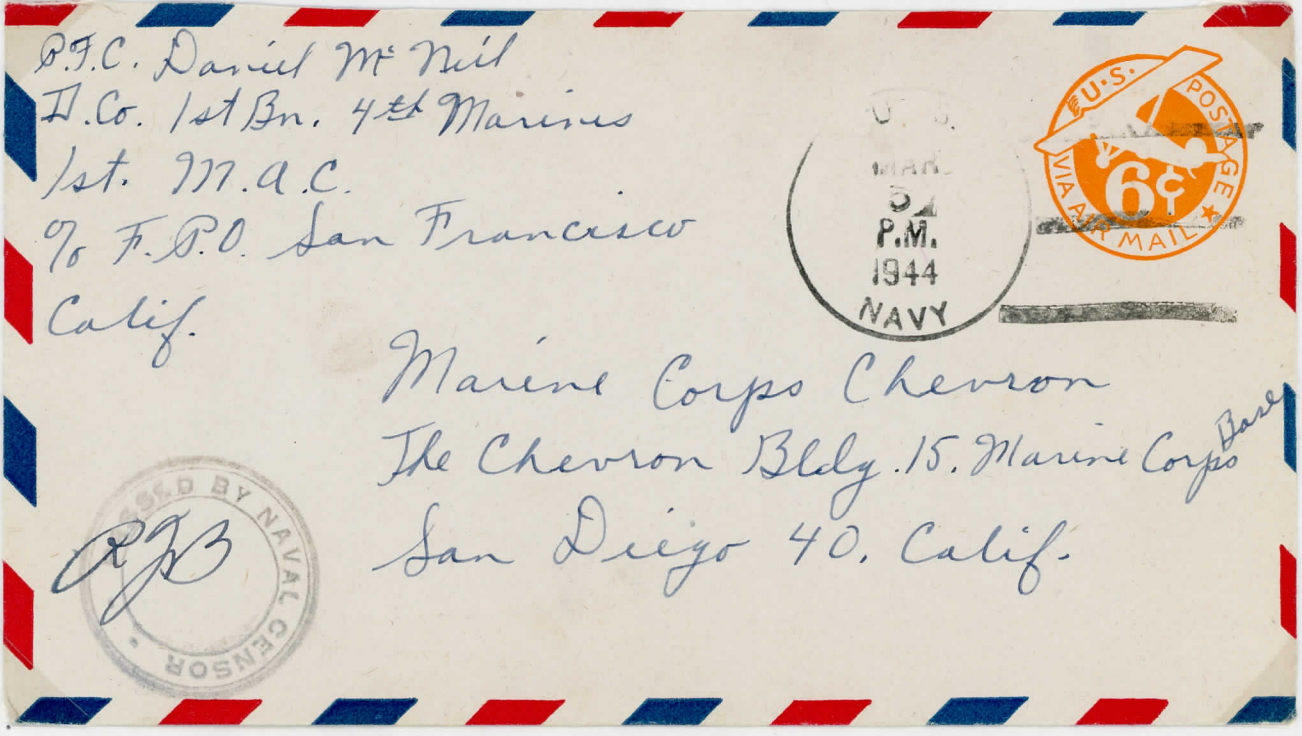 P.F.C. Daniel Mc Neil
D. Co. 1st Bn. 4th Marines
1st. M.A.C.
c/o F.P.O. San Francisco
Calif.
U. S.
MAR
5
P.M.
1944
NAVY
U.S. POSTAGE
6¢
VIA AIR MAIL
Marine Corps Chevron
The Chevron Bldg. 15. Marine Corps Base
San Diego 40. Calif.
PASSED BY NAVAL CENSOR
RJB